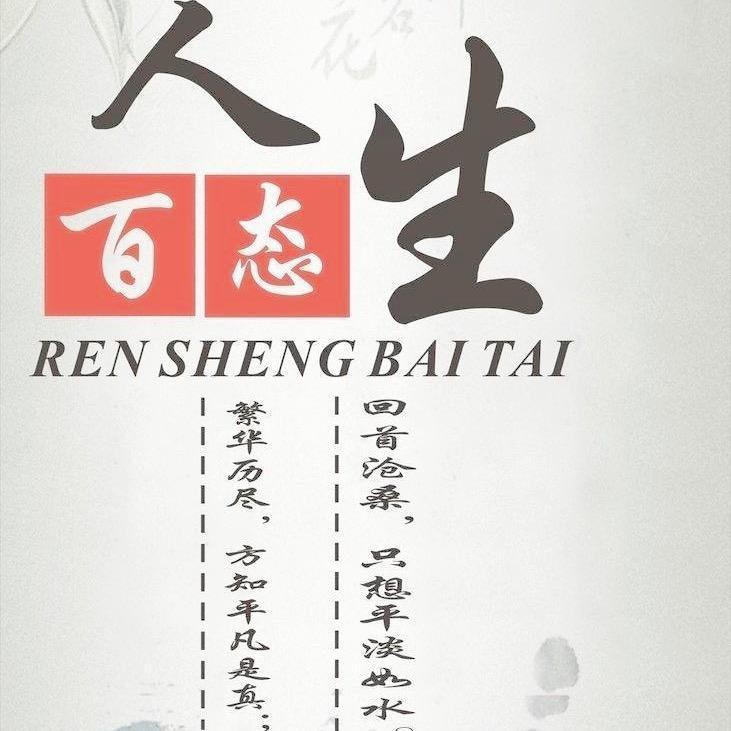 人生
百态
REN SHENG BAI TAI
繁华历尽，方知平凡是真；
回首沧桑，只想平淡如水。